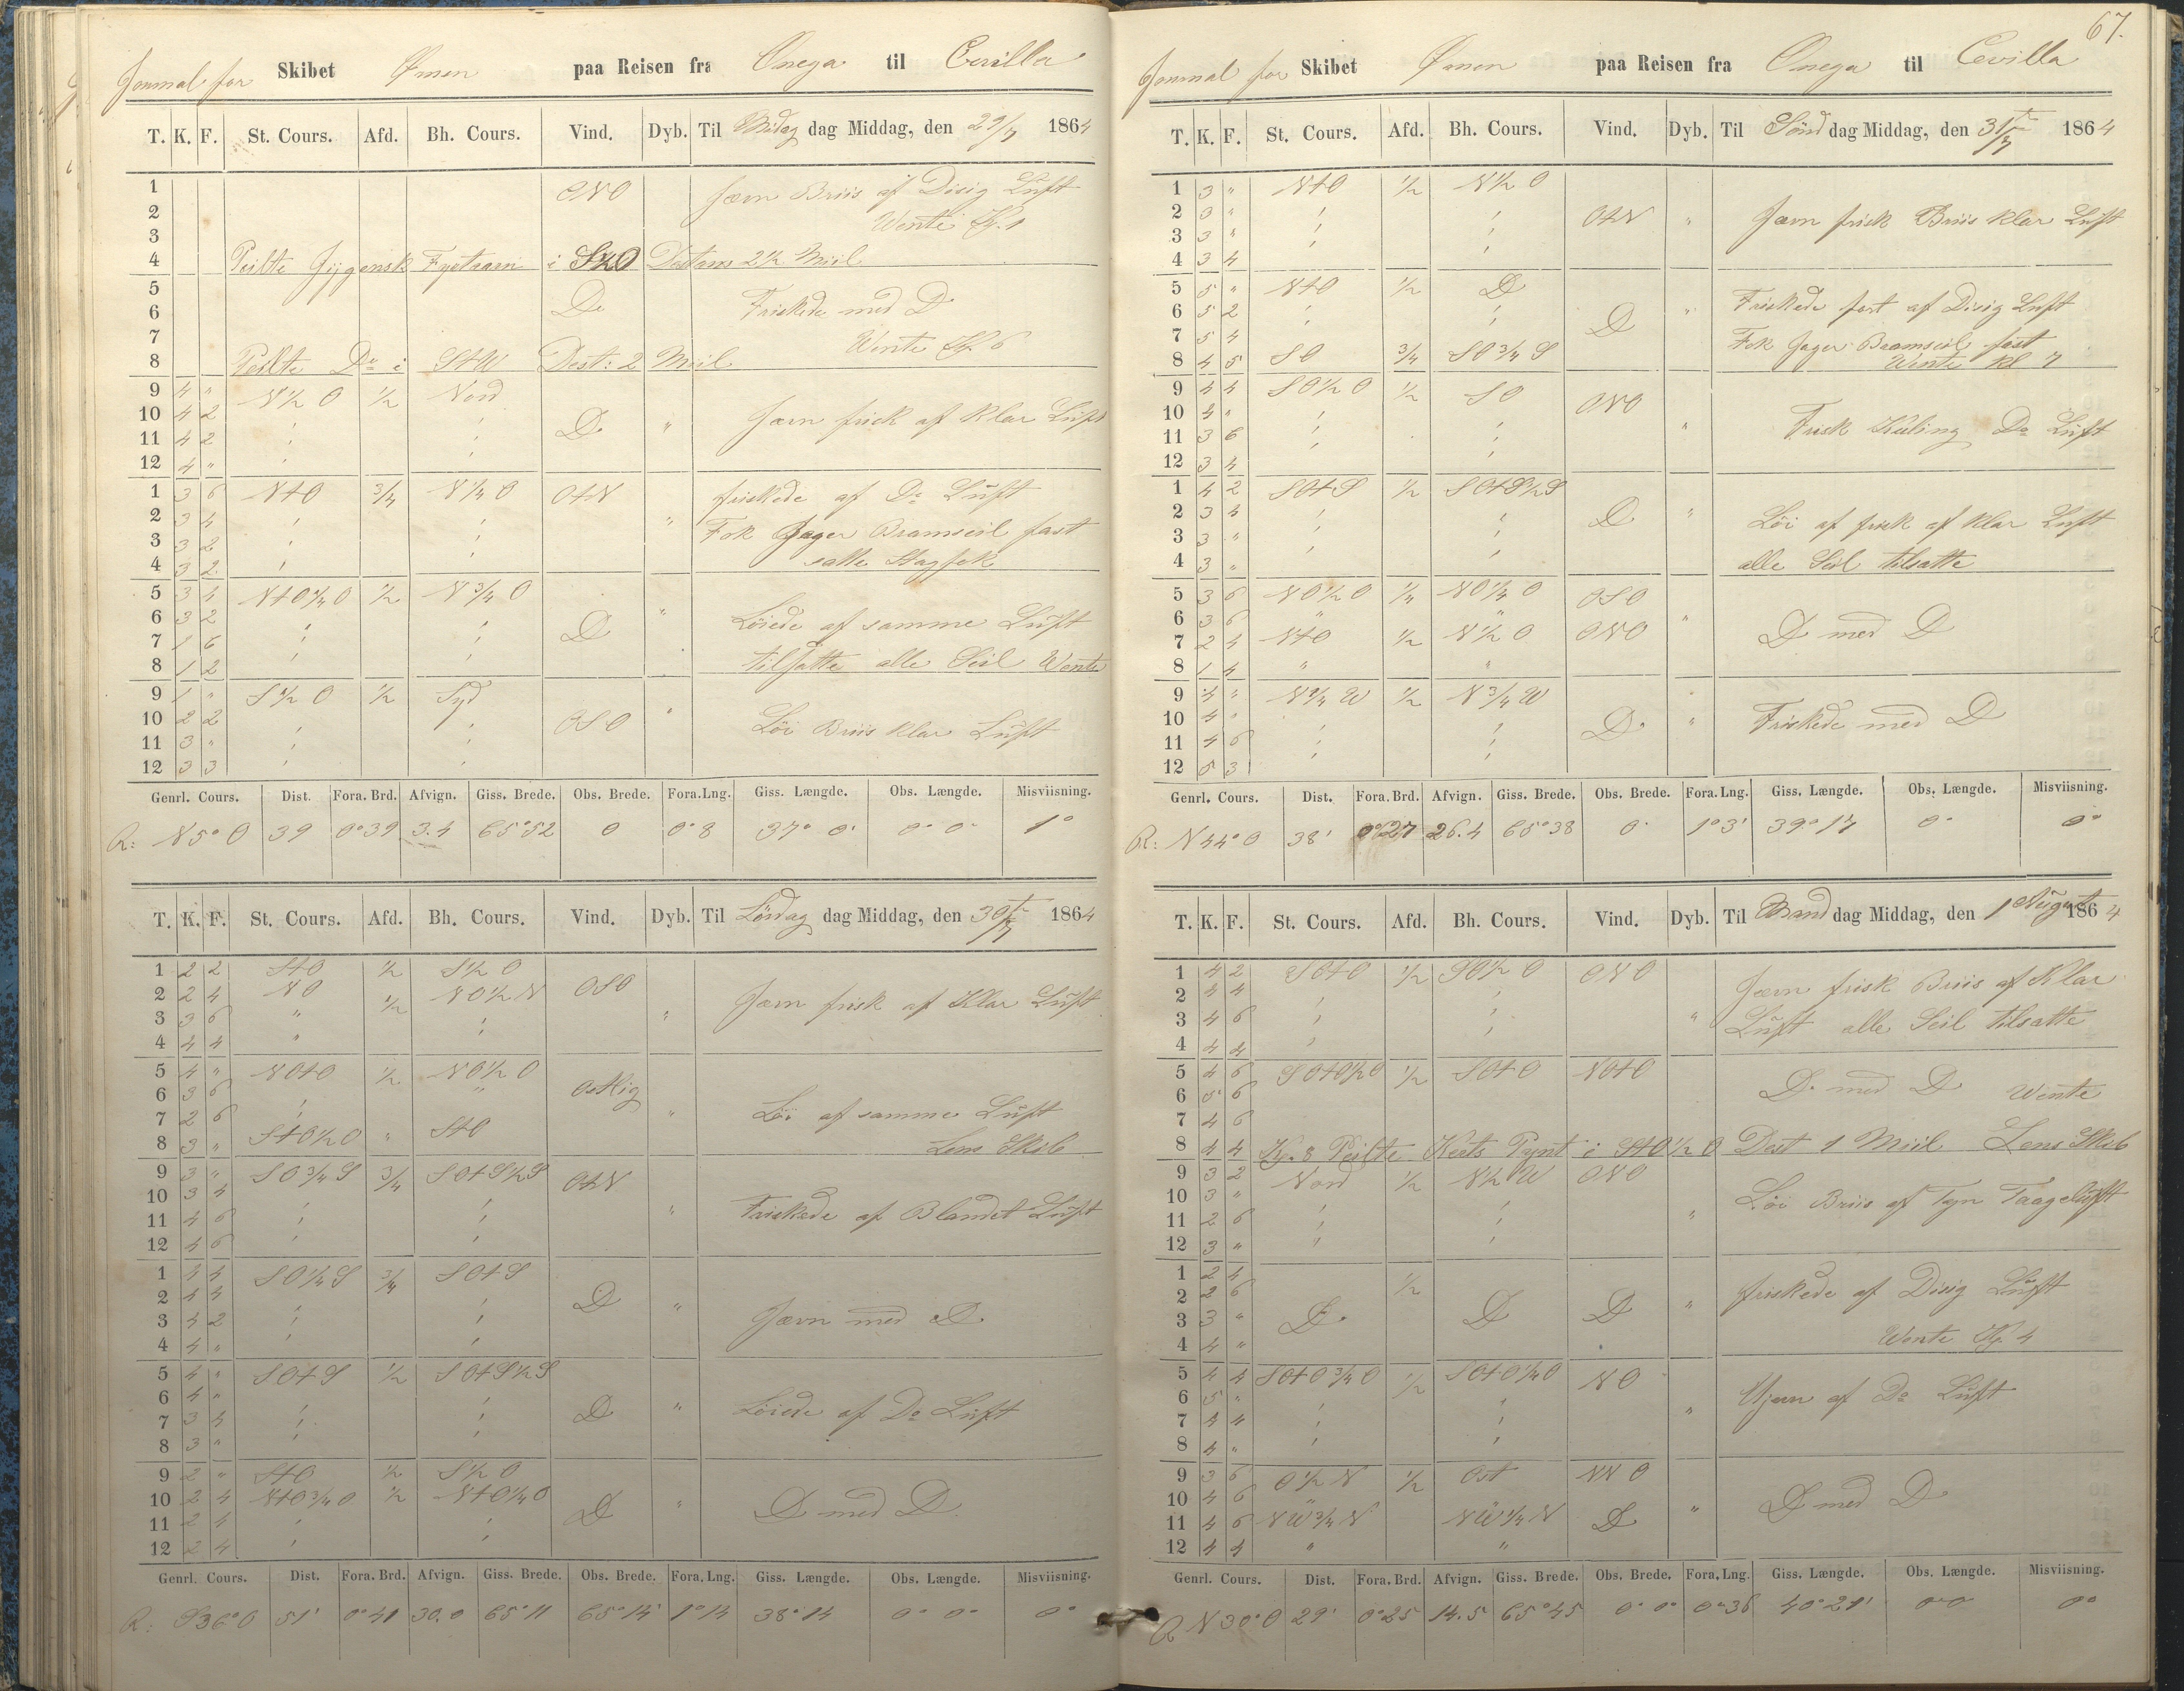 Journal for Skibet Ømen paa Reisen fra Onega til Cevilla
T. K. F. St. Cours. Afd. Bh. Cours. Vind. Dyb. Til dag Middag, den 29/7 1864
1 ONO Jævn Briis af Disig Luft
2 Wente Kl. 1
3
4 Peilte Fyrtaarn i Distans 2½ Miil
5
6 Do Friskede med D
7 Wente Kl 6
8 Peilte Do i StW Dest: 2 Miil
9 4 " N½O ½ Nord
10 4 2 D " Jævn frisk af Klar Luft
11 4 2
12 4 "
1 3 6 NtO ¾ N¼O OtN friskede af Do Luft
2 3 4 " Fok Jager Bramseil fast
3 3 2 satte Stagfok
4 3 2
5 3 4 NtO¼O ½ N¾O
6 3 2 D " Löiede af samme Luft
7 1 6
8 1 2 tilsatte alle Seil Wente
9 1 " S½O ½ Syd
10 2 2 OSO " Löi Briis Klar Luft
11 3 "
12 3 3
Genrl. Cours. Dist. Fora. Brd. Afvign. Giss. Brede. Obs. Brede. Fora. Lng. Giss. Længde. Obs. Længde. Misviisning.
R: N5°O 39 0°39 3.4 65°52 0 0°8 37° 0' 0° 0' 1°
T. K. F. St. Cours. Afd. Bh. Cours. Vind. Dyb. Til Lördag dag Middag, den 30te/7 1864
1 2 2 StO ½ S½O OSO
2 2 4 NO ½ NO½N Jævn frisk af Klar Luft
3 3 6 " "
4 4 4 "
5 4 " NOtO ½ NO½O Ostlig
6 3 6 "
7 2 6 " Löi af samme Luft
8 3 " StO½O " StO Lens Skib
9 3 " SO¾S ¾ SOtS½S OtN
10 3 4
11 4 6 " Friskede af Blandet Luft
12 4 6
1 4 4 SO¼S ¾ SOtS
2 4 4 D "
3 4 2 Jævn med D
4 4 "
5 4 " SOtS ½ SOtS½S
6 4 "
7 3 4 D " Löiede af Do Luft
8 3 "
9 2 " StO ½ S½O
10 2 4 NtO¾O ½ NtO¼O D " D med D
11 2 4
12 2 4
Genrl. Cours. Dist. Fora. Brd. Afvign. Giss. Brede. Obs. Brede. Fora. Lng. Giss. Længde. Obs. Længde. Misviisning.
R: S36°O 51' 0°41 30.0 65°11 65°14' 1°14 38°14 0° 0° 0°
67.
Journal for Skibet Ømen paa Reisen fra Onega til Cevilla
T. K. F. St. Cours. Afd. Bh. Cours. Vind. Dyb. Til Sönd dag Middag, den 31te/7 1864
1 3 " NtO ½ N½O
2 3 " OtN " Jævn frisk Briis klar Luft
3 3 "
4 3 4
5 5 " NtO ½ D
6 5 2 D " Friskede fort af Disig Luft
7 5 4 Fok Jager Bramseil fast
8 4 5 SO ¾ SO¾S Wente kl 7
9 4 4 SO½O ½ SO
10 4 " ONO
11 3 6 " Frisk Kuling Do Luft
12 3 4
1 4 2 SOtS ½ SOtS½S
2 3 4 D " Löi af frisk af klar Luft
3 3 "
4 3 " alle Seil tilsatte
5 3 6 NO½O ¼ NO¼O OSO
6 3 6 " " "
7 2 4 NtO ½ N½O ONO D med D
8 1 4 " "
9 4 " N¼W ½ N¾W
10 4 " D " Friskede med D
11 4 6
12 5 3
Genrl. Cours. Dist. Fora. Brd. Afvign. Giss. Brede. Obs. Brede. Fora. Lng. Giss. Længde. Obs. Længde. Misviisning.
R: N44°O 38' 0°27 26.4 65°38 0° 1°3' 39°17 0° 0°
T. K. F. St. Cours. Afd. Bh. Cours. Vind. Dyb. Til Mand dag Middag, den 1 August 1864
1 4 2 SOtO ½ SO½O ONO
2 4 4 Jævn frisk Briis af Klar
3 4 6 " Luft alle Seil tilsatte
4 4 4
5 4 6 SOtO½O ½ SOtO NOtO
6 5 6 D med D Wente
7 4 6
8 4 4 Kl. 8 Peilte Pynt i StO½O Dest 1 Miil Lens Skib
9 3 2 Nord ½ N½W ONO
10 3 " Löi Briis af Tyn Taageluft
11 2 6 "
12 3 "
1 2 4 ½
2 2 6 " friskede af Disig Luft
3 3 " D D D
4 4 " Wente Kl. 4
5 4 4 SOtO¾O ½ SOtO¼O NO
6 5 " af Do Luft
7 4 4 "
8 4 "
9 3 6 O½N ½ Ost NNO
10 4 6 " D med D
11 4 6 NW¾N NW¼N D
12 4 4 " "
Genrl. Cours. Dist. Fora. Brd. Afvign. Giss. Brede. Obs. Brede. Fora. Lng. Giss. Længde. Obs. Længde. Misviisning.
R N30°O 29' 0°25 14.5 65°45 0° 0° 0°36 40°21' 0°0 0°